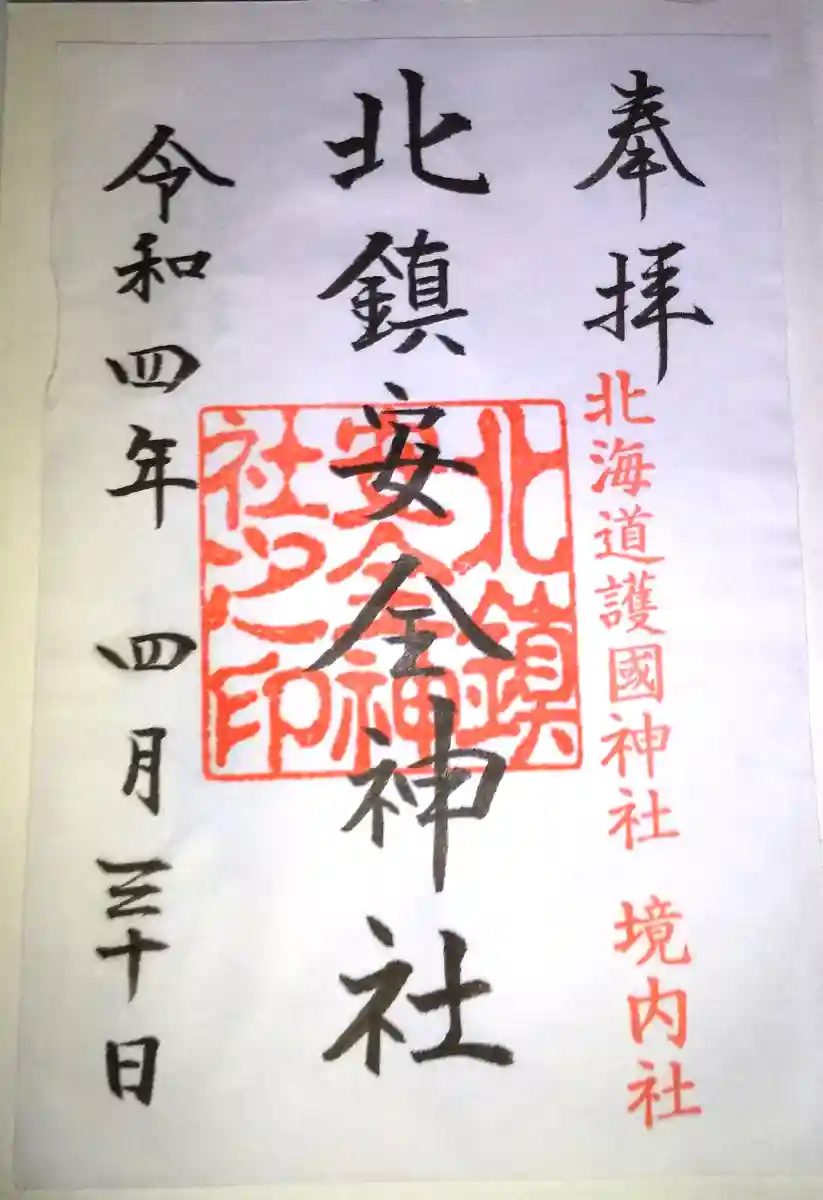 奉拝
北海道護國神社 境内社
北鎮安全神社
北鎮
安全神
社之印
令和四年 四月三十日